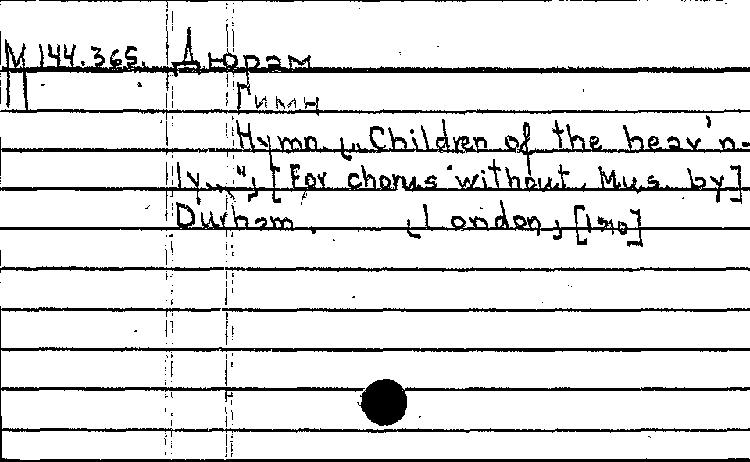 М 144.365. Дюрам
Гимн
Hymn „Children of the heav'n-
ly...", [For chorus without. Mus. by]
Durham. [London], [1910]